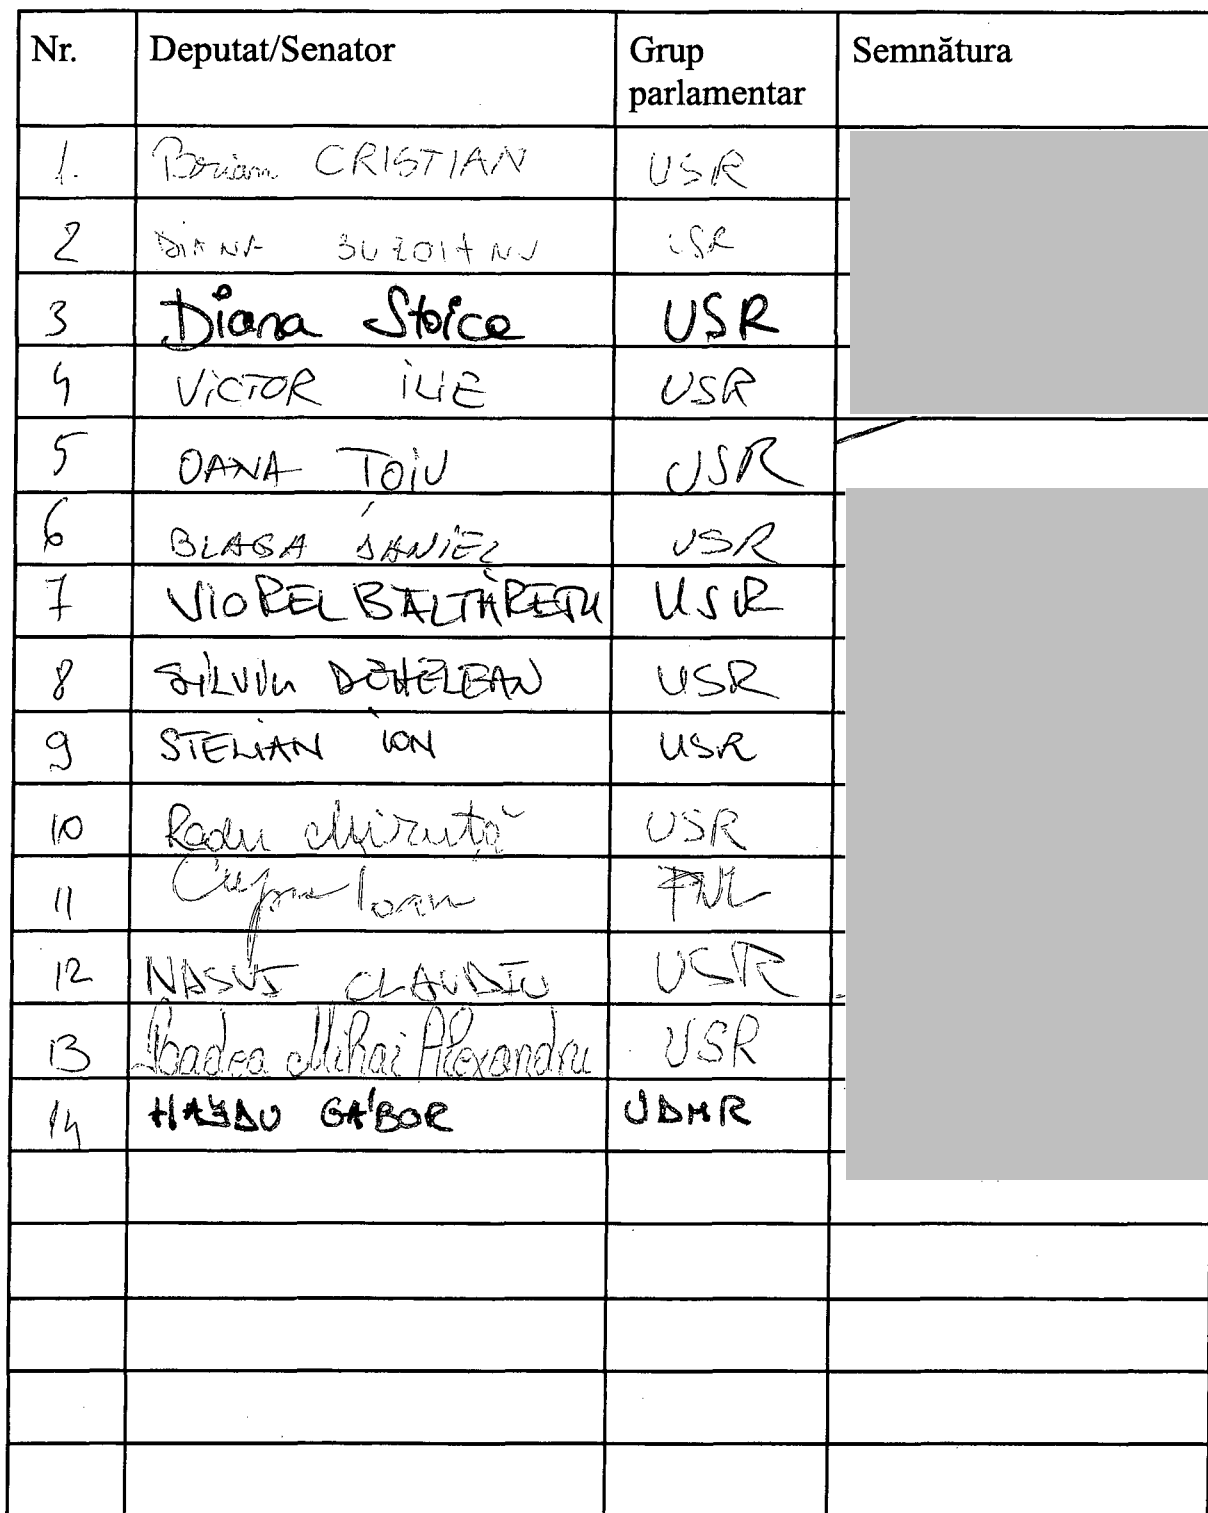 Nr. Deputat/Senator Grup parlamentar Semnătura
1. Brian CRISTIAN USR
2 DIANA BUZOIANU USR
3 Diana Stoica USR
4 VICTOR ILIE USR
5 OANA ȚOIU USR
6 BLAGA DANIEL USR
7 VIOREL BĂLTĂREȚU USR
8 SILVIU DEHELEAN USR
9 STELIAN ION USR
10 Radu Miruță USR
11 Cupșa Ioan PNL
12 NASUI CLAUDIU USR
13 Badea Mihai Alexandru USR
14 HAJDU GÁBOR UDMR